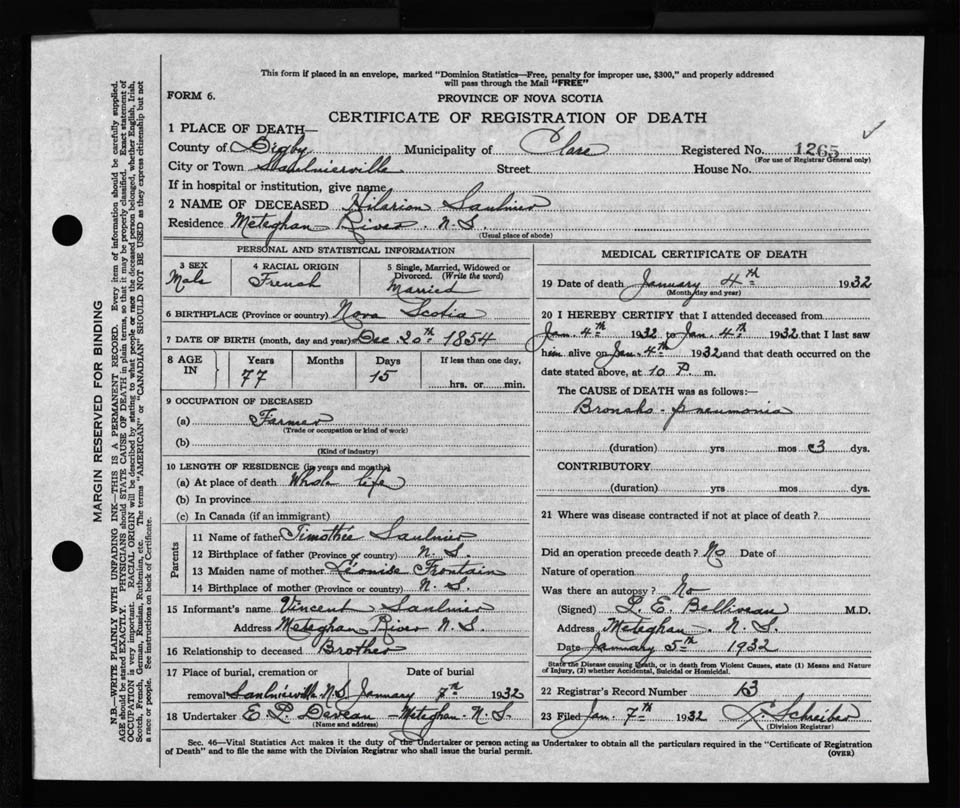 This form if placed in an envelope, marked "Dominion Statistics—Free, penalty for improper use, $300," and properly addressed
will pass through the Mail "FREE"
FORM 6.
PROVINCE OF NOVA SCOTIA
CERTIFICATE OF REGISTRATION OF DEATH
1 PLACE OF DEATH—
County of Digby Municipality of Clare Registered No. 1265
(For use of Registrar General only)
City or Town Saulnierville Street House No.
If in hospital or institution, give name
2 NAME OF DECEASED Hilarion Saulnier
Residence Meteghan River. N.S.
(Usual place of abode)
PERSONAL AND STATISTICAL INFORMATION
3 SEX 4 RACIAL ORIGIN 5 Single, Married, Widowed or
Divorced. (Write the word)
Male French Married
6 BIRTHPLACE (Province or country) Nova Scotia
7 DATE OF BIRTH (month, day and year) Dec 20th 1854
8 AGE IN Years Months Days If less than one day,
77 15 hrs. or min.
9 OCCUPATION OF DECEASED
(a) Farmer
(Trade or occupation or kind of work)
(b)
(Kind of industry)
10 LENGTH OF RESIDENCE (in years and months)
(a) At place of death Whole life
(b) In province
(c) In Canada (if an immigrant)
Parents
11 Name of father Timothée Saulnier
12 Birthplace of father (Province or country) N. S.
13 Maiden name of mother Léonise Frontain
14 Birthplace of mother (Province or country) N. S.
15 Informant's name Vincent Saulnier
Address Meteghan River N. S.
16 Relationship to deceased Brother
17 Place of burial, cremation or Date of burial
removal Saulnierville N.S. January 7th 1932
18 Undertaker E. L. Daveau Meteghan N. S.
(Name and address)
MEDICAL CERTIFICATE OF DEATH
19 Date of death January 4th 1932
(Month, day and year)
20 I HEREBY CERTIFY that I attended deceased from
Jan. 4th 1932 to Jan. 4th 1932 that I last saw
him alive on Jan. 4th 1932 and that death occurred on the
date stated above, at 10 P. m.
The CAUSE of DEATH was as follows:—
Broncho-pneumonia
(duration) yrs mos 3 dys.
CONTRIBUTORY
(duration) yrs mos dys.
21 Where was disease contracted if not at place of death?
Did an operation precede death? No Date of
Nature of operation
Was there an autopsy? No
(Signed) L. E. Belliveau M.D.
Address Meteghan. N. S.
Date January 5th 1932
State the Disease causing Death, or in death from Violent Causes, state (1) Means and Nature
of Injury, (2) whether Accidental, Suicidal or Homicidal.
22 Registrar's Record Number 13
23 Filed Jan. 7th 1932 Schreiber
(Division Registrar)
Sec. 46—Vital Statistics Act makes it the duty of the Undertaker or person acting as Undertaker to obtain all the particulars required in the "Certificate of Registration
of Death" and to file the same with the Division Registrar who shall issue the burial permit.
(OVER)
MARGIN RESERVED FOR BINDING
N.B.—WRITE PLAINLY WITH UNFADING INK—THIS IS A PERMANENT RECORD. Every item of information should be carefully supplied.
AGE should be stated EXACTLY. PHYSICIANS should STATE CAUSE OF DEATH in plain terms, so that it may be properly classified. Exact statement of
OCCUPATION is very important. RACIAL ORIGIN will be described by stating to what people or race the deceased person belonged, whether English, Irish,
Scotch, French, German, Russian, Ruthenian, etc. The terms "AMERICAN" or "CANADIAN" SHOULD NOT BE USED as they express citizenship but not
a race or people. See instructions on back of Certificate.